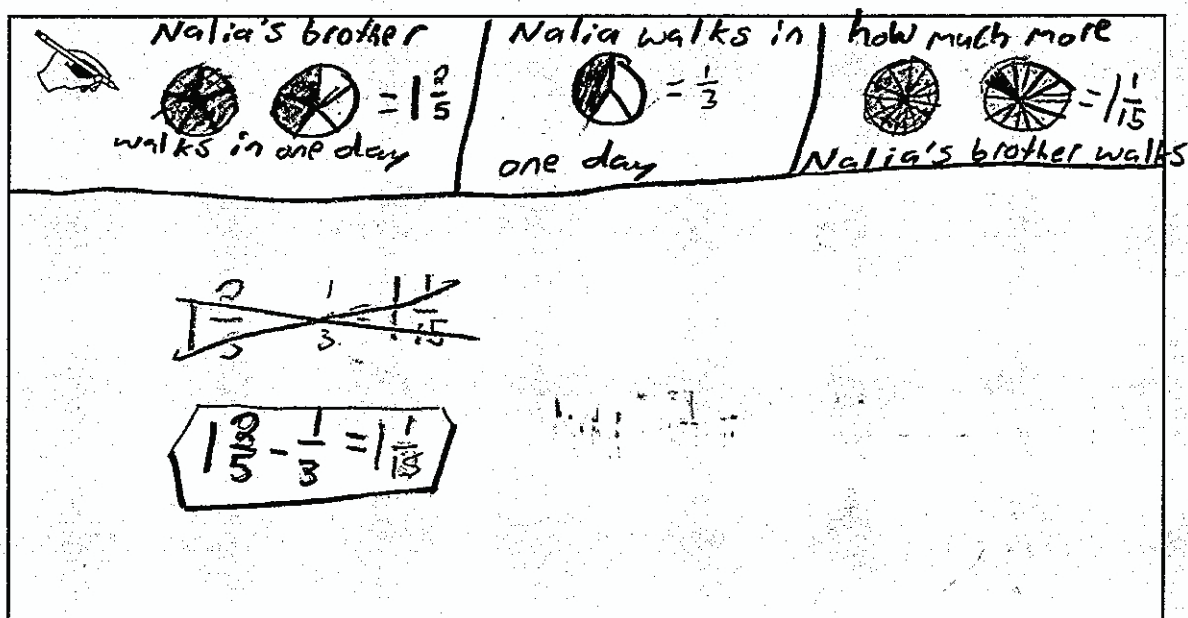 Nalia's brother
= 1 2/5
walks in one day
Nalia walks in
= 1/3
one day
how much more
= 1 1/15
Nalia's brother walks
1 2/5 1/3 = 1 1/15
1 2/5 - 1/3 = 1 1/15